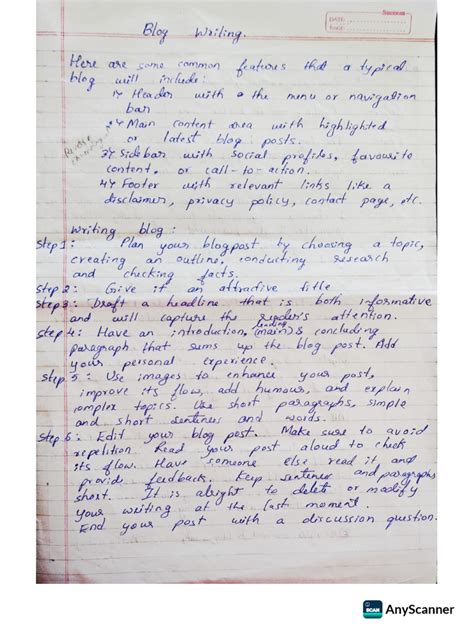 Success
DATE:
PAGE:
Blog Writing.
Here are some common features that a typical
blog will include:
1) Header with the menu or navigation
bar
2) Main content area with highlighted
or latest blog posts.
3) Sidebar with social profiles, favourite
content, or call-to-action.
4) Footer with relevant links like a
disclaimer, privacy policy, contact page, etc.
Writing blog:
Step 1: Plan your blogpost by choosing a topic,
creating an outline, conducting research
and checking facts.
Step 2: Give it an attractive title
Step 3: Draft a headline that is both informative
and will capture the reader's attention.
Step 4: Have an introduction, leading (main) & concluding
paragraph that sums up the blog post. Add
your personal experience.
Step 5: Use images to enhance your post,
improve its flow, add humour, and explain
complex topics. Use short paragraphs, simple
and short sentences and words.
Step 6: Edit your blog post. Make sure to avoid
repetition. Read your post aloud to check
its flow. Have someone else read it and
provide feedback. Keep sentences and paragraphs
short. It is alright to delete or modify
your writing at the last moment.
End your post with a discussion question.
SCAN
AnyScanner